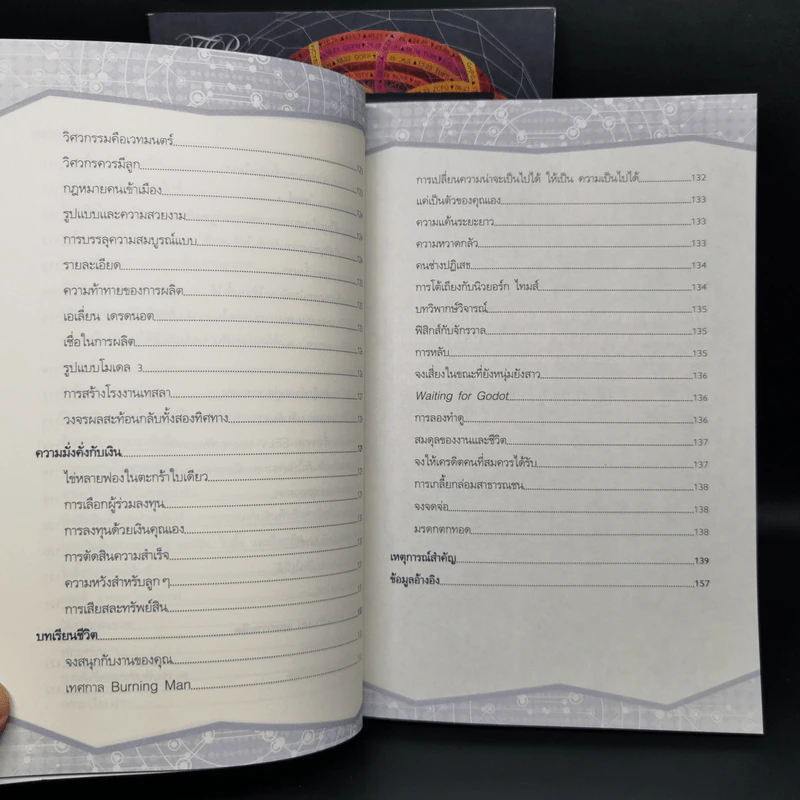 วิศวกรรมคือเวทมนตร์
วิศวกรควรมีลูก
กฎหมายคนเข้าเมือง
รูปแบบและความสวยงาม
การบรรลุความสมบูรณ์แบบ
รายละเอียด
ความท้าทายของการผลิต
เอเลี่ยน เดรดนอต
เชื่อในการผลิต
รูปแบบโมเดล 3
การสร้างโรงงานเทสลา
วงจรผลสะท้อนกลับทั้งสองทิศทาง
ความมั่งคั่งกับเงิน
ไข่หลายฟองในตะกร้าใบเดียว
การเลือกผู้ร่วมลงทุน
การลงทุนด้วยเงินคุณเอง
การตัดสินความสำเร็จ
ความหวังสำหรับลูก ๆ
การเสียสละทรัพย์สิน
บทเรียนชีวิต
จงสนุกกับงานของคุณ
เทศกาล Burning Man
การเปลี่ยนความน่าจะเป็นไปได้ ให้เป็น ความเป็นไปได้ 132
แค่เป็นตัวของคุณเอง 133
ความแค้นระยะยาว 133
ความหวาดกลัว 133
คนช่างปฏิเสธ 134
การโต้เถียงกับนิวยอร์ก ไทมส์ 134
บทวิพากษ์วิจารณ์ 135
ฟิสิกส์กับจักรวาล 135
การหลับ 135
จงเสี่ยงในขณะที่ยังหนุ่มยังสาว 136
Waiting for Godot 136
การลองทำดู 136
สมดุลของงานและชีวิต 137
จงให้เครดิตคนที่สมควรได้รับ 137
การเกลี้ยกล่อมสาธารณชน 138
จงจดจ่อ 138
มรดกตกทอด 138
เหตุการณ์สำคัญ 139
ข้อมูลอ้างอิง 157